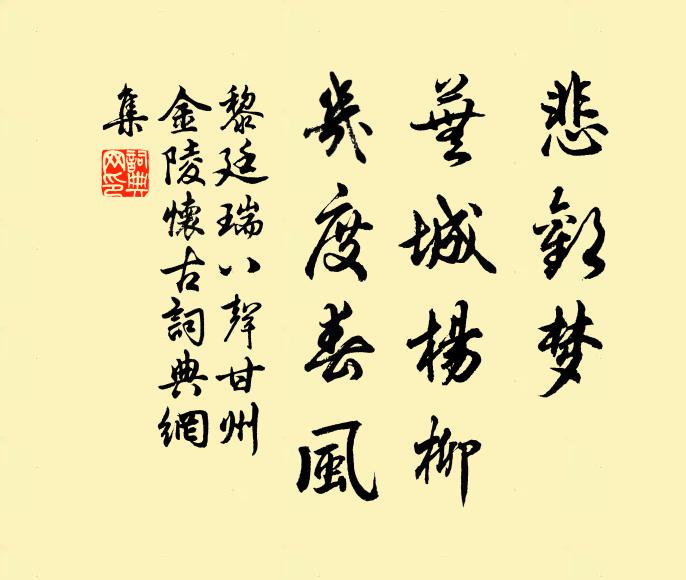 悲歡梦
蕪城楊柳
幾度春風
黎廷瑞八聲甘州
金陵懷古詞典網
集
詞典网印